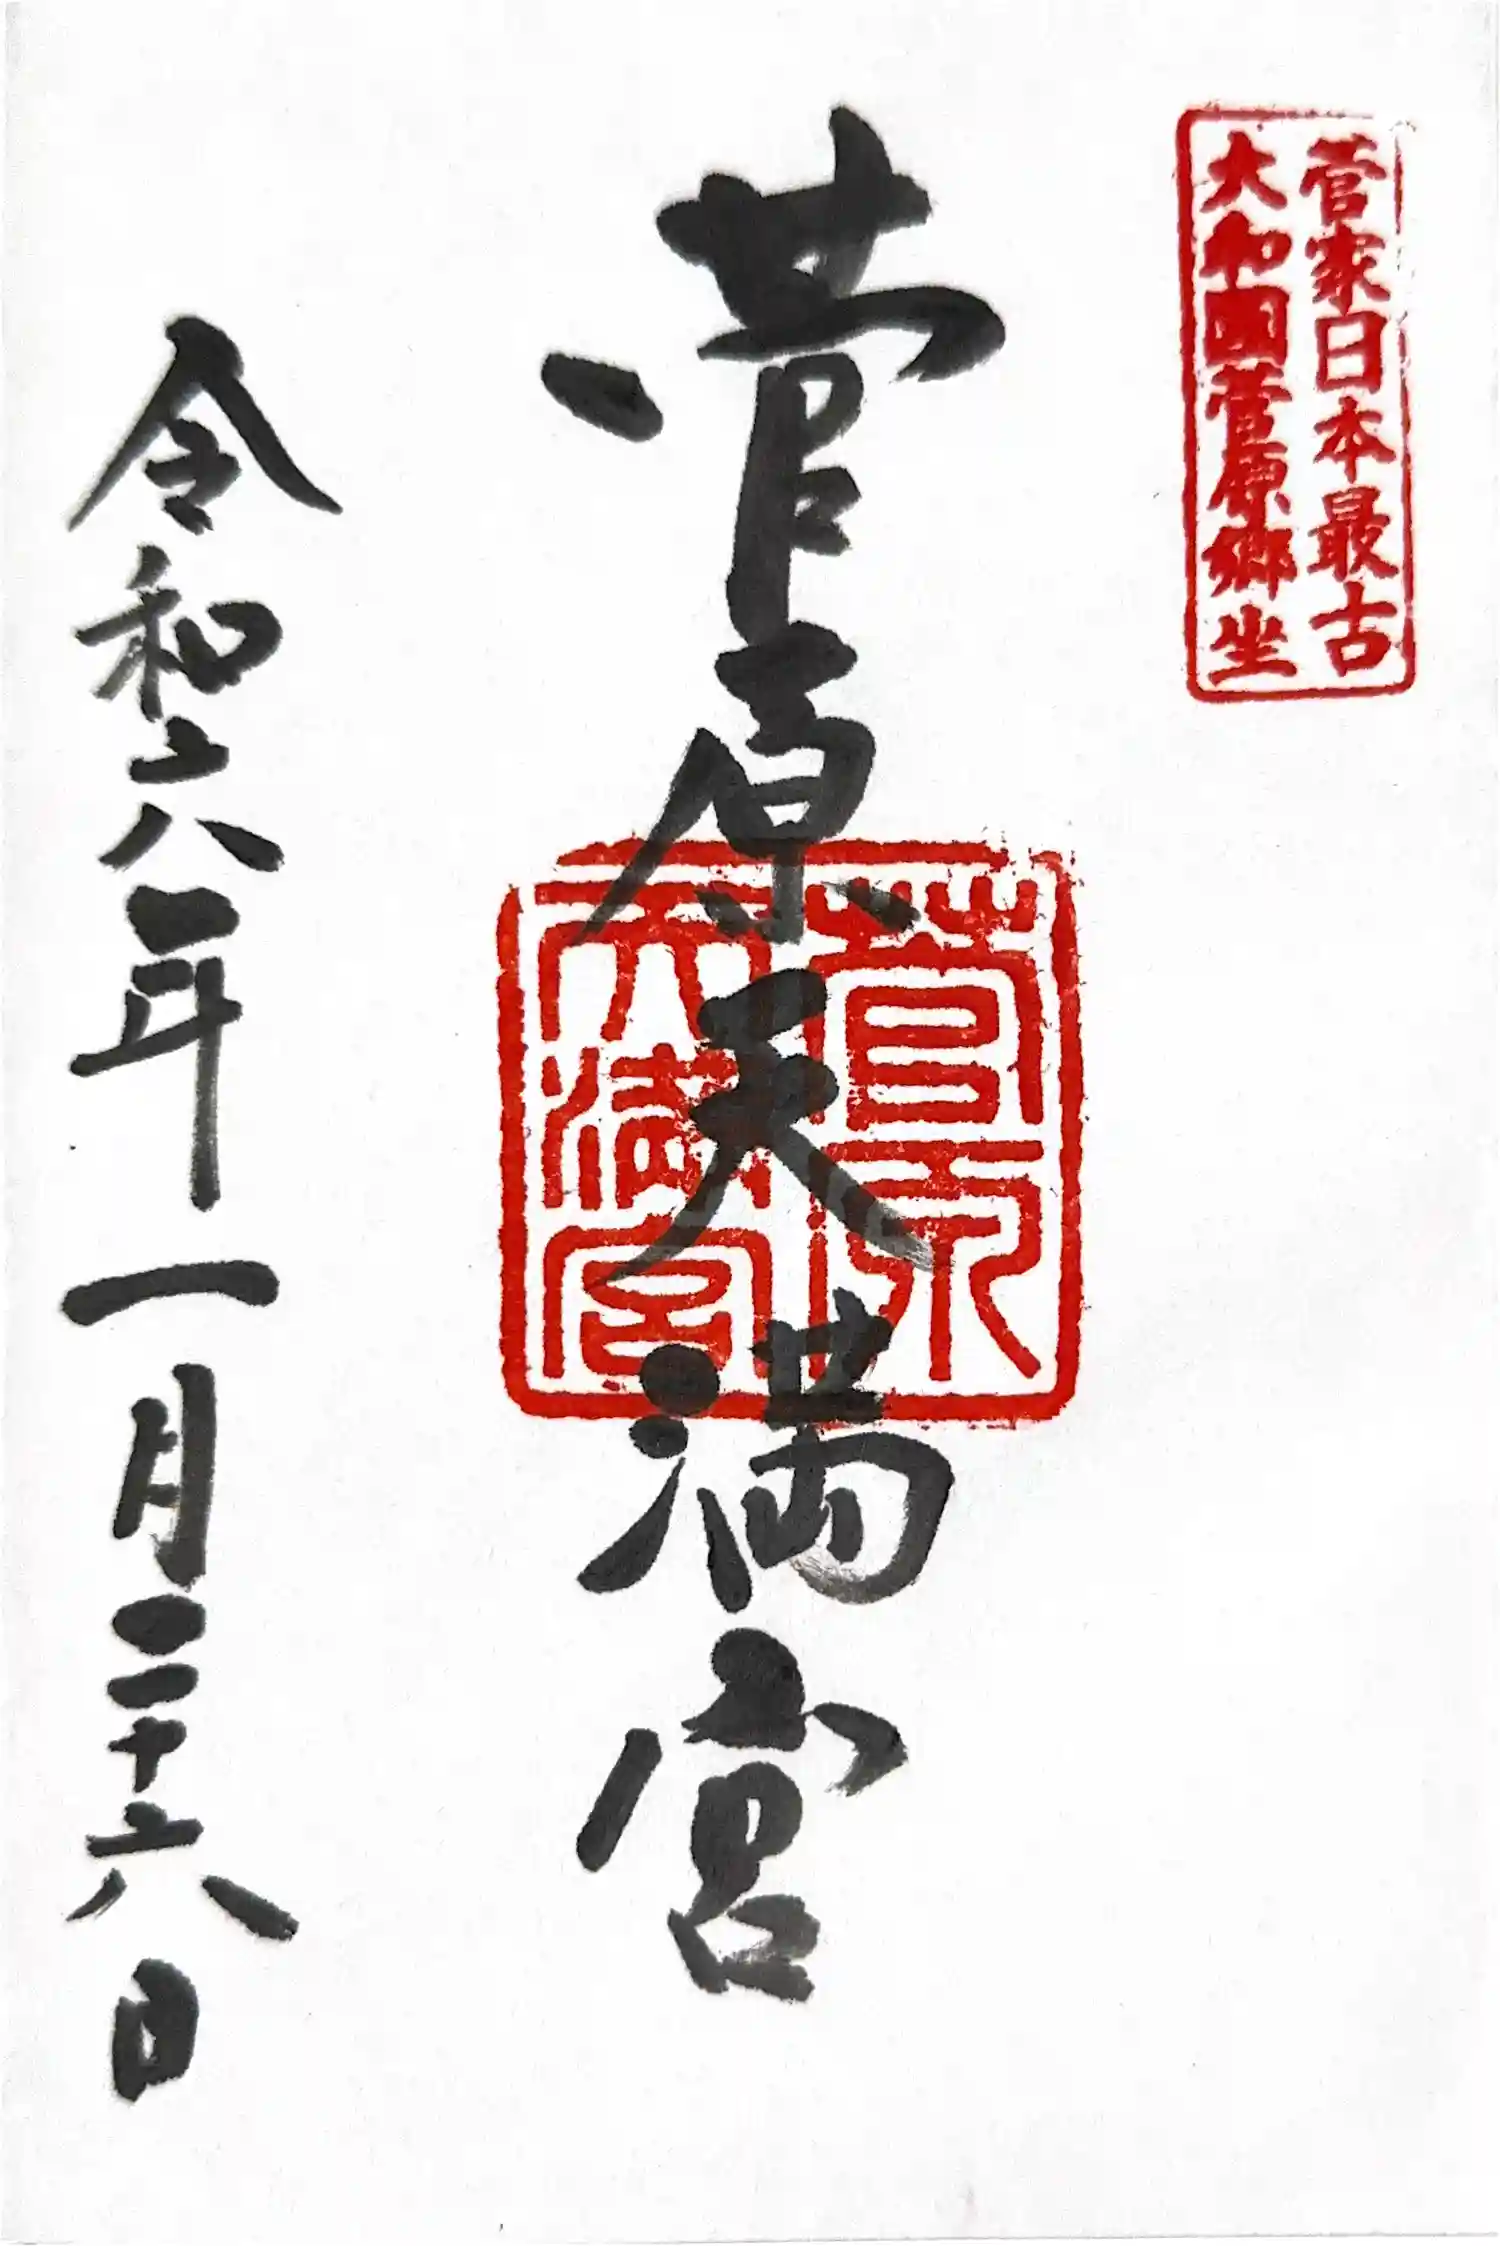 菅家日本最古
大和國菅原郷坐
菅原天満宮
菅原
天満宮
令和六年一月二十六日